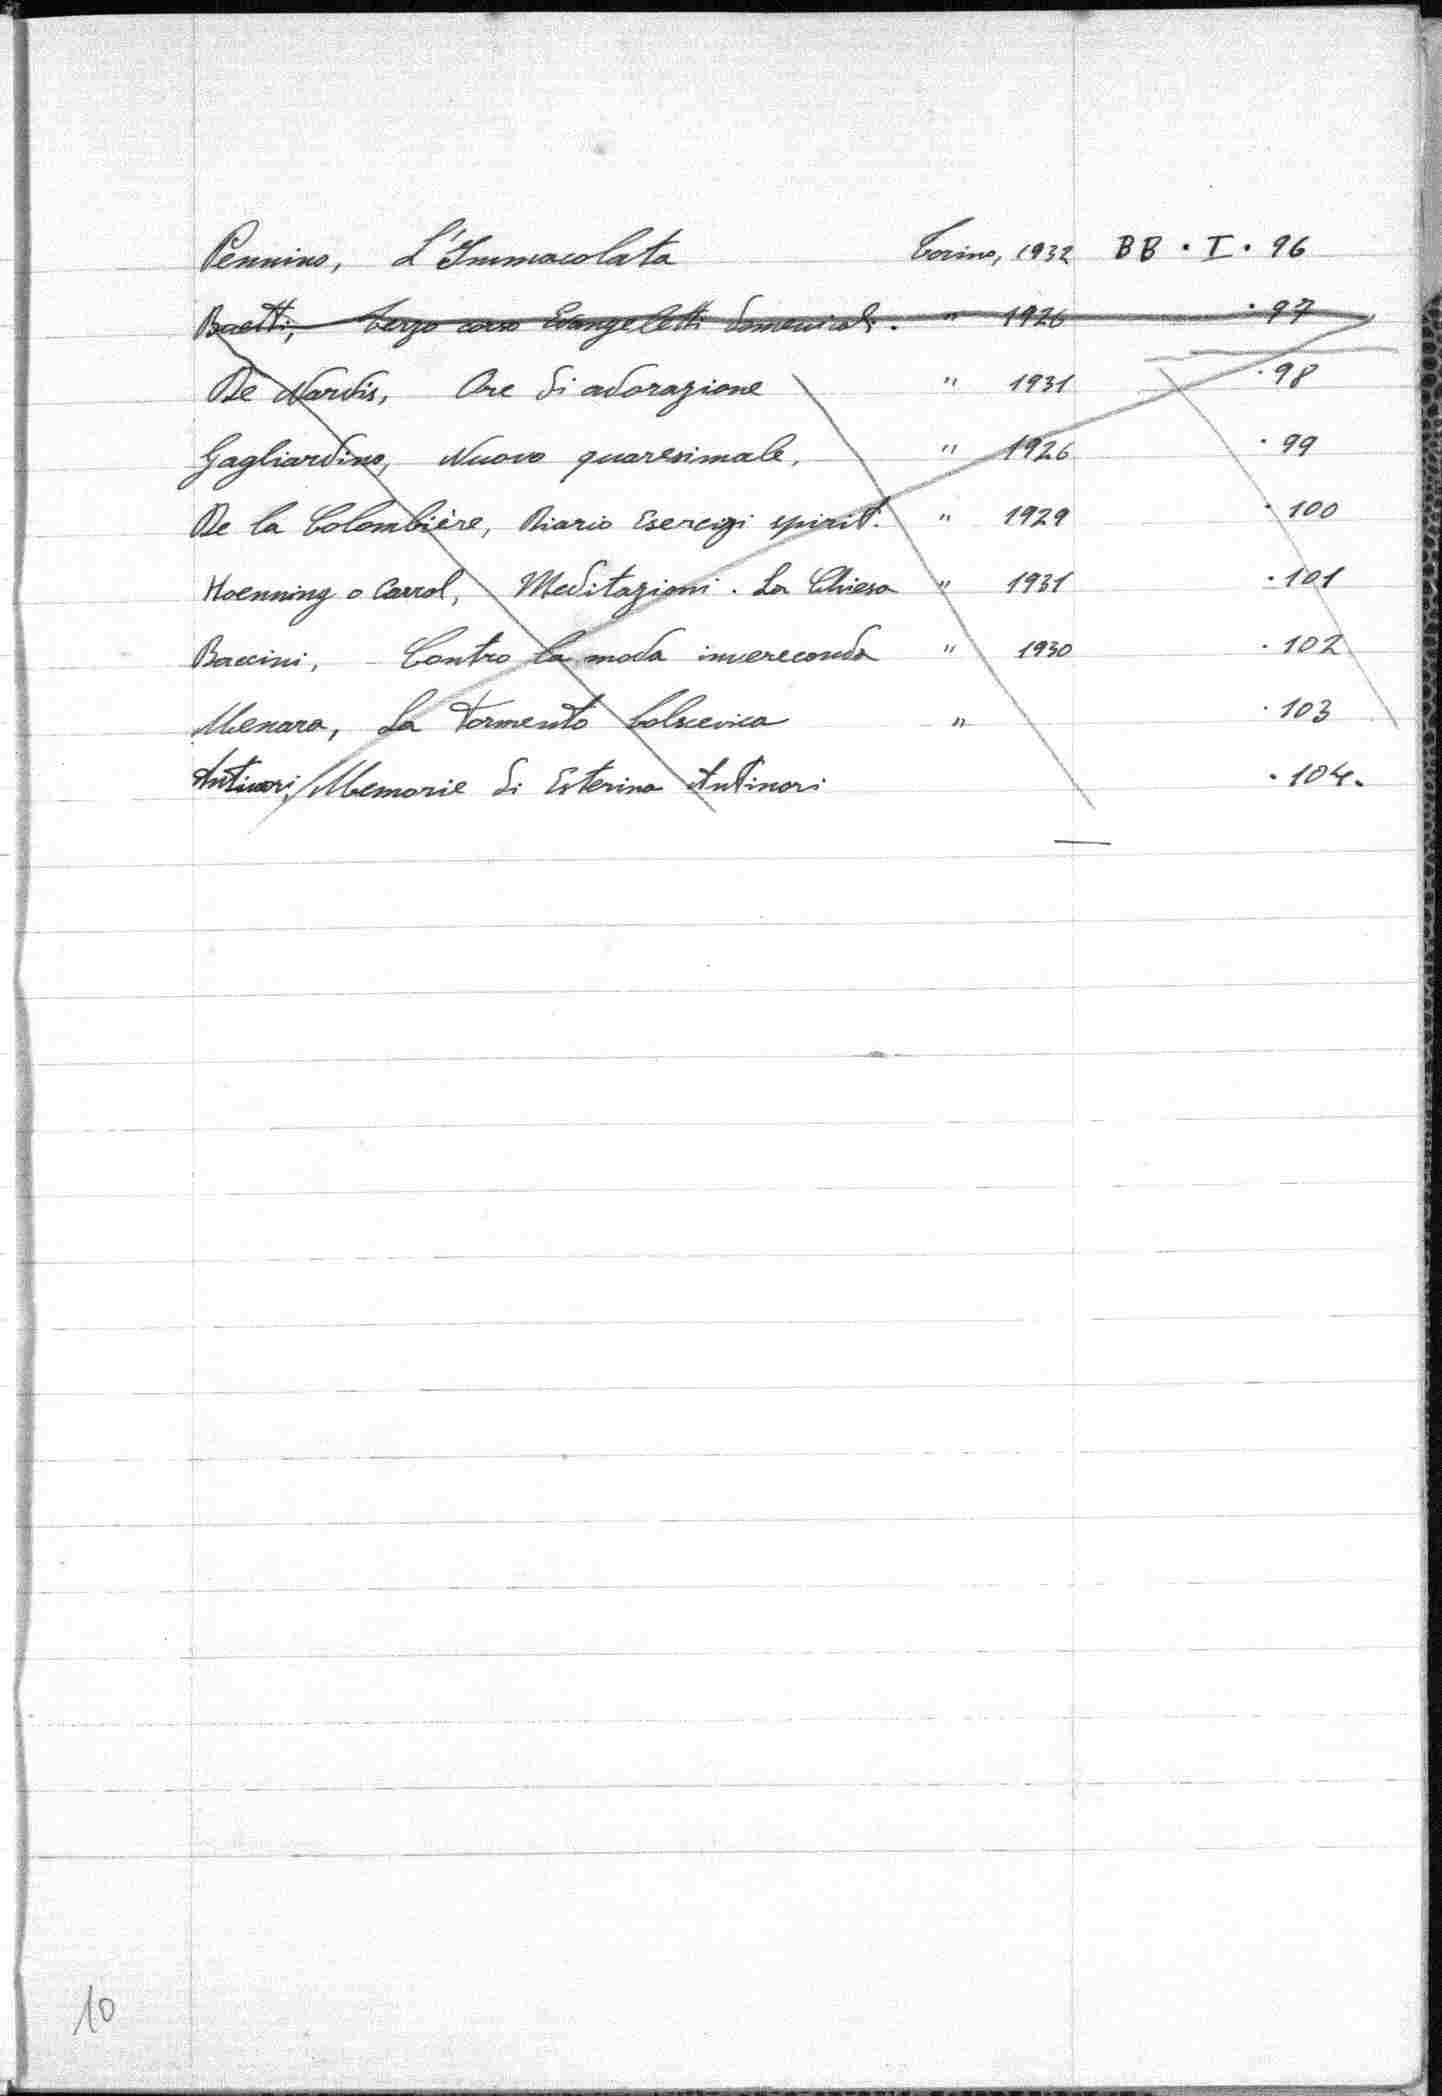 Pennino, L'Immacolata Torino, 1932 BB · I · 96
Terzo corso Evangeletti domenicali. " 1926 · 97
De Nardis, Ore di adorazione " 1931 · 98
Gagliardino, Nuovo quaresimale, " 1926 · 99
De la Colombière, Diario Esercizi spirit. " 1929 · 100
Hoenning o Carrol, Meditazioni. La Chiesa " 1931 · 101
Baccini, Contro la moda invereconda " 1930 · 102
Menara, La tormenta bolscevica " · 103
Antinori, Memorie di Esterina Antinori · 104.
10